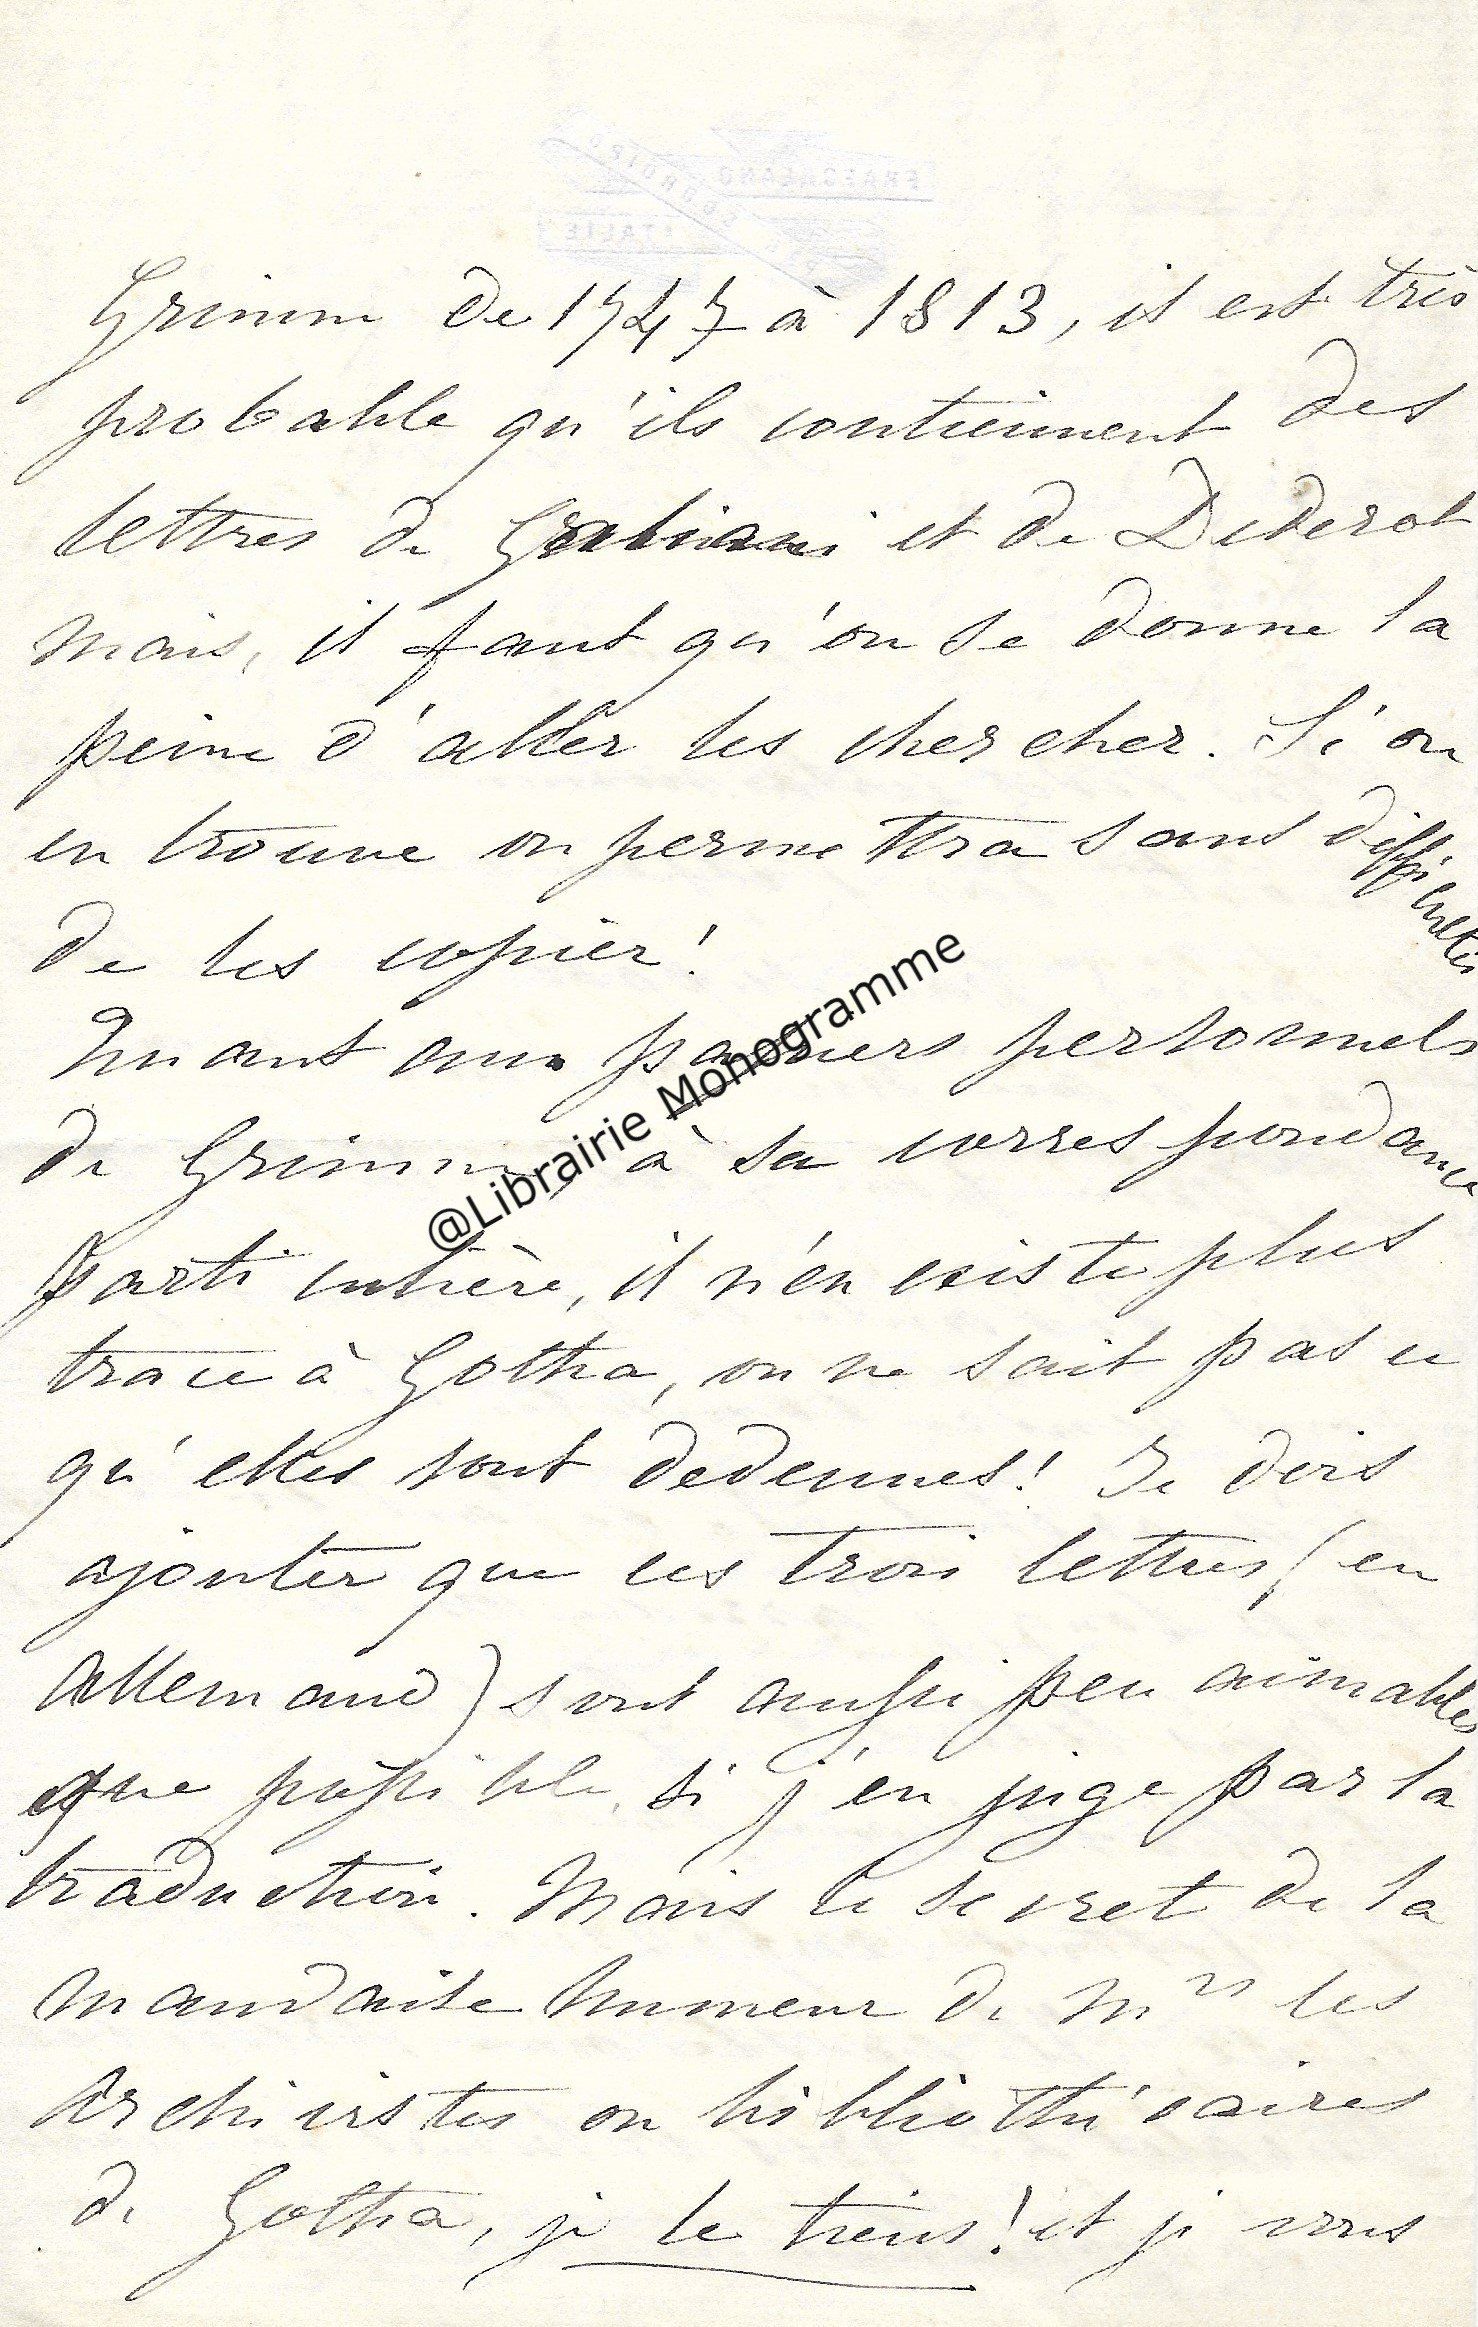 Grimm de 1747 à 1813, il est très
probable qu'ils contiennent des
lettres de Galiani et de Diderot
mais, il faut qu'on se donne la
peine d'aller les chercher. Si on
en trouve on permettra sans difficultés
de les copier!
Quant aux papiers personnels
de Grimm, à sa correspondance
particulière, il n'en existe plus
trace à Gotha, on ne sait pas ce
qu'elles sont devenues! Je dois
ajouter que ces trois lettres (en
allemand) sont aussi peu aimables
que possible, si j'en juge par la
traduction. Mais le secret de la
mauvaise humeur de Mrs les
Archivistes ou bibliothécaires
de Gotha, je le tiens! et je vous
@Librairie Monogramme